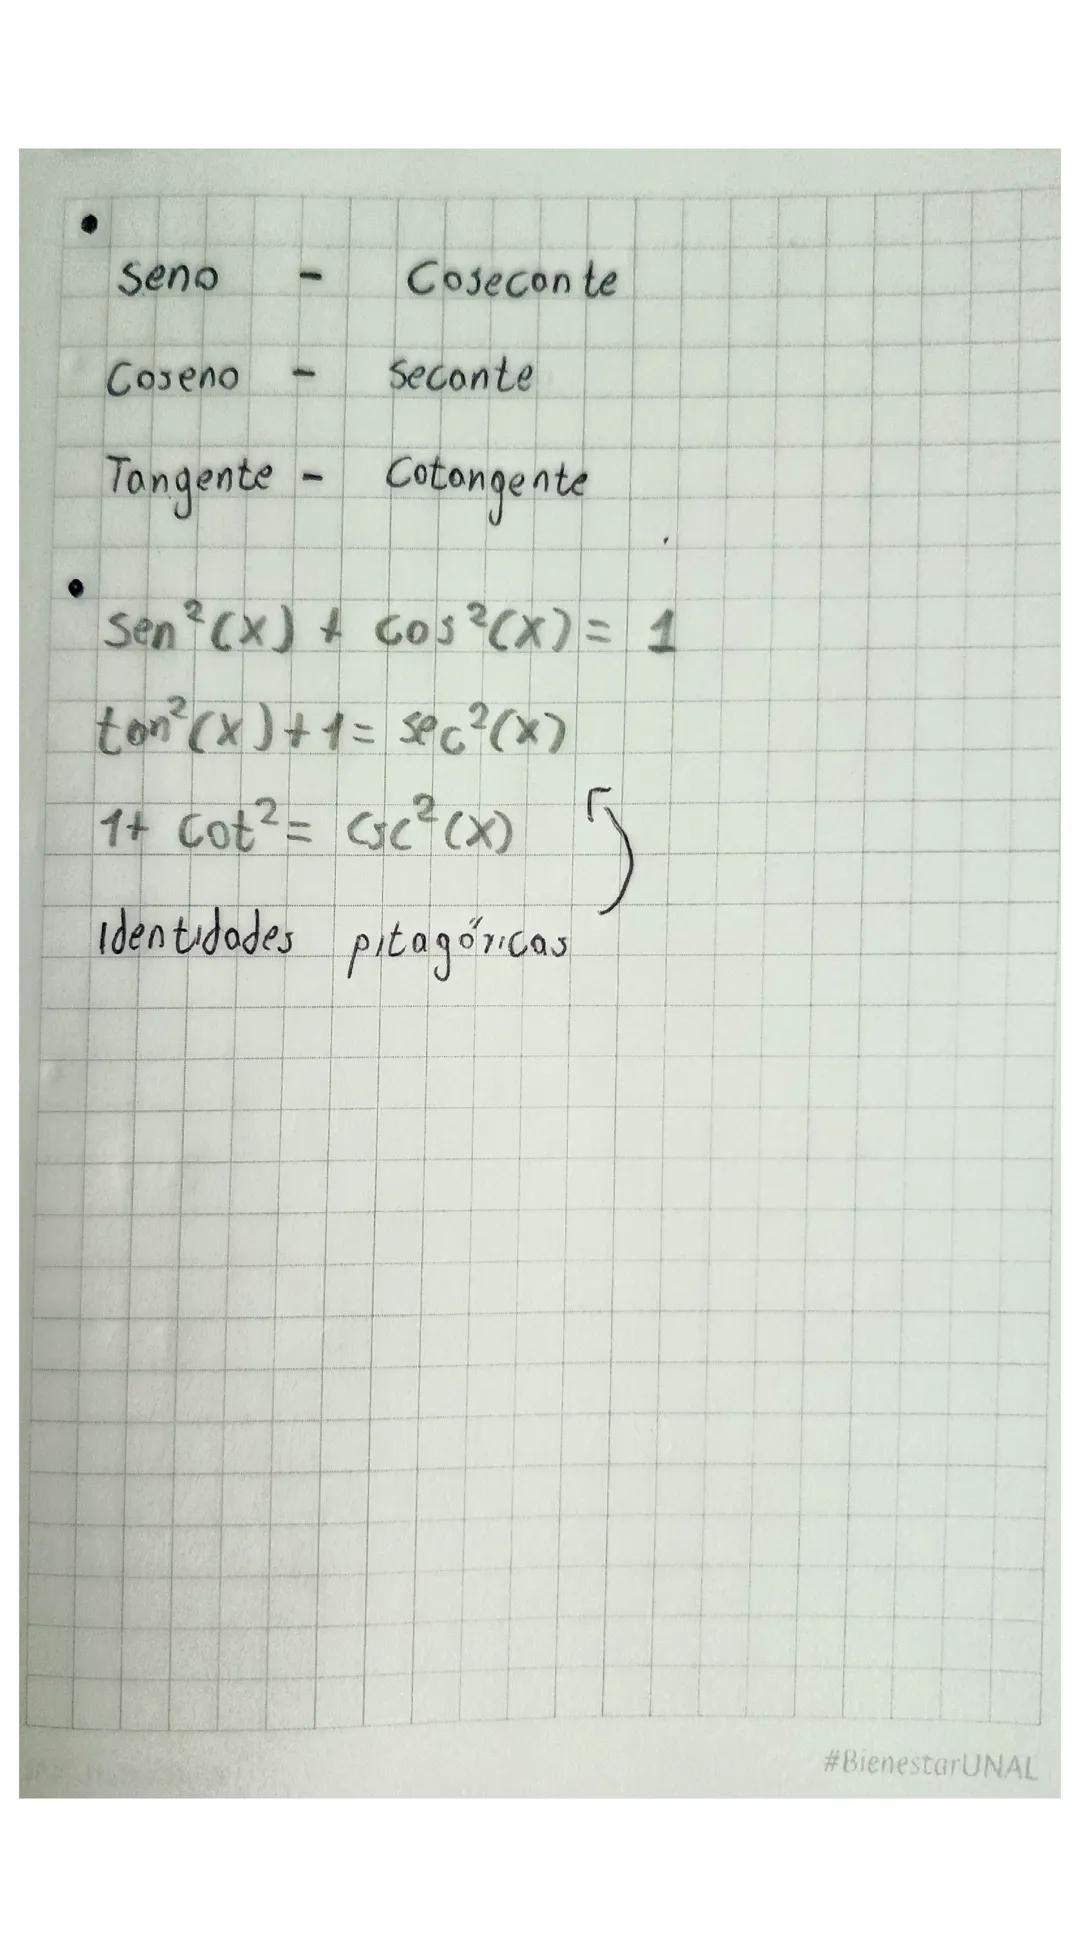 • Seno - Cosecante
Coseno - Secante
Tangente - Cotangente
• Sen²(x) + Cos²(x) = 1
tan²(x) + 1 = sec²(x)
1 + Cot² = Csc²(x)
Identidades pitagóricas
#BienestarUNAL